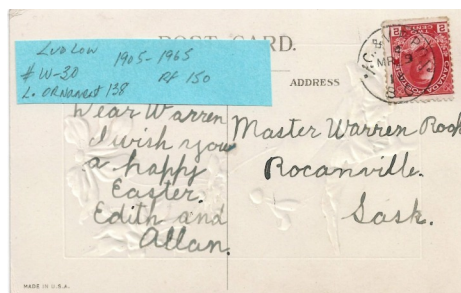 POST CARD.
LUDLOW 1905-1965
# W-30 RF 150
L. ORNAMENT 138
ADDRESS
Dear Warren
I wish you
a happy
Easter.
Edith and
Allan.
Master Warren Rook
Rocanville.
Sask.
CANADA POSTAGE
2 TWO CENTS 2
MADE IN U.S.A.